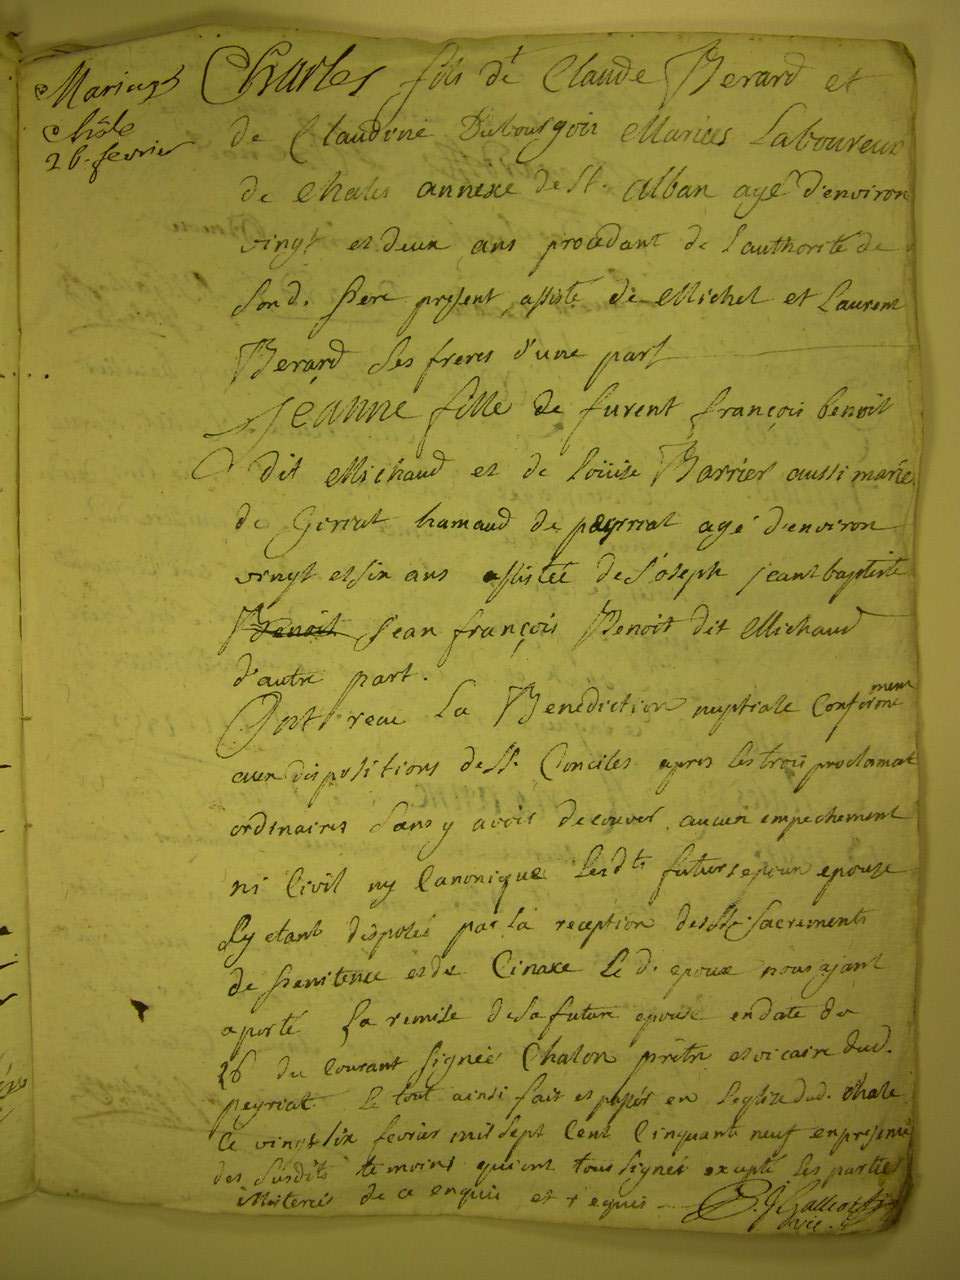 Mariage
Châle
26 fevrier
Charles fils de Claude Berard et
de Claudine Dubourgoin Mariés Laboureux
de Chales annexe de St. Alban agé d'environ
vingt et deux ans procedant de l'authorité de
Sond. Pere present, assisté de Michel et Laurent
Berard Ses freres d'une part
Jeanne fille de furent françois benoit
dit Michaud et de Loüise Barrier aussi mariés
de hamaud de peyriat agé d'environ
vingt et six ans assistée de Joseph jeant baptiste
Benoit Jean françois Benoit dit Michaud
d'autre part.
Ont receu La Benediction nuptiale Conformement
aux dispositions de Sts. Conciles apres les trois proclamat
ordinaires Sans y avoir decouver aucun empechement
ni Civil ny Canonique Lesdts futurs epoux epouse
Sy etant disposés par la reception des Sts Sacrements
de Penitence et de Le d. epoux nous ajant
aporté La remise de Sa future epouse en date du
26 du Courant Signée Chalon prêtre et vicaire dud.
Peyriat Le tout ainsi fait et passé en Leglize dud. Chale
Ce vingt six fevrier mil sept Cent Cinquante neuf en presence
des Susdits temoins qui ont tous signés excepté les parties
illiterées de ce enquis et requis
vic.